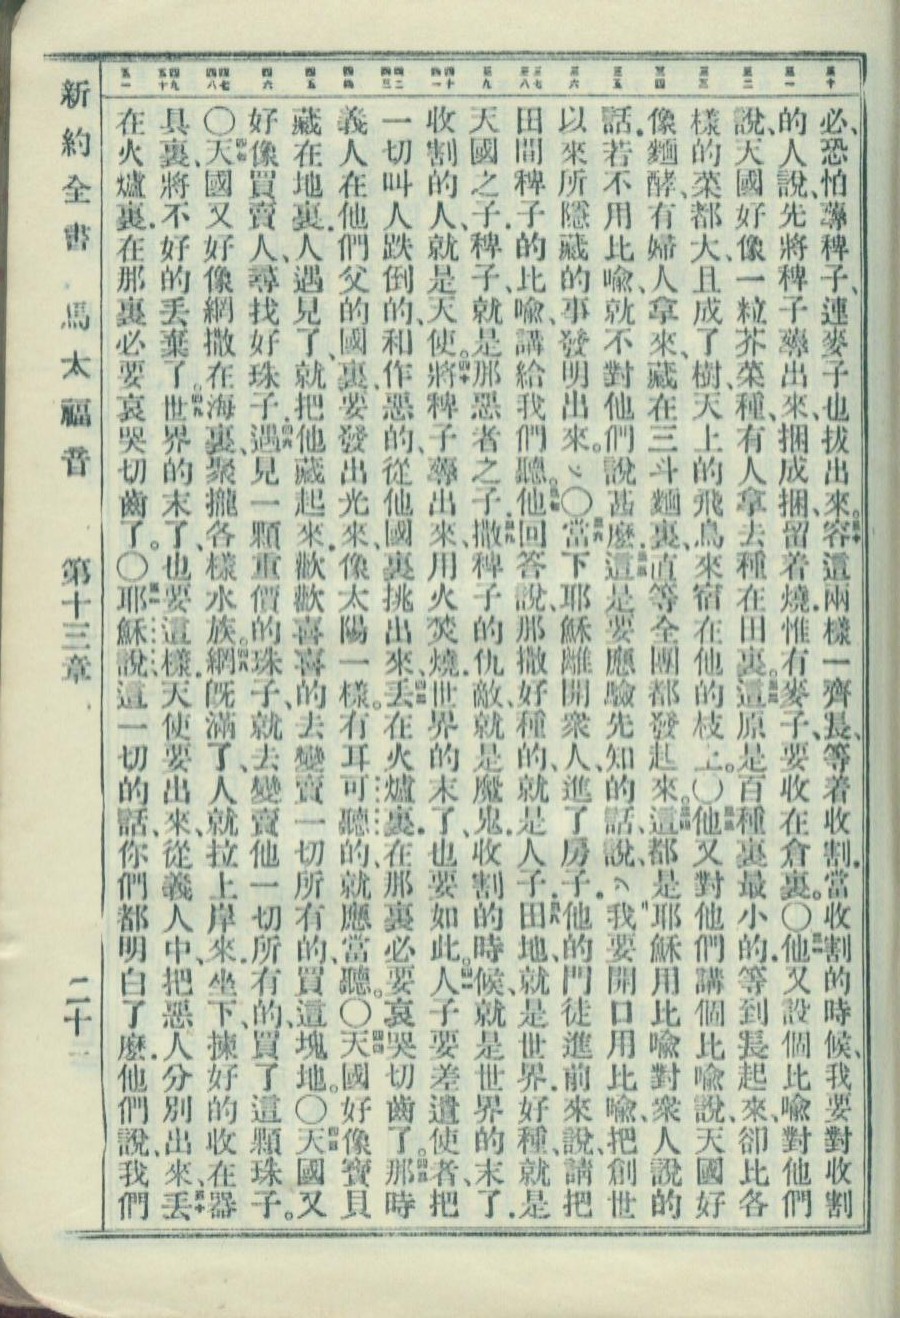 必、恐怕薅稗子、連麥子也拔出來。容這兩樣一齊長、等着收割。當收割的時候、我要對收割
的人說、先將稗子薅出來、捆成捆、留着燒、惟有麥子、要收在倉裏。〇他又設個比喩對他們
說、天國好像一粒芥菜種、有人拿去種在田裏。這原是百種裏最小的、等到長起來、卻比各
樣的菜都大、且成了樹、天上的飛鳥來宿在他的枝上。〇他又對他們講個比喩說、天國好
像麵酵、有婦人拿來、藏在三斗麵裏、直等全團都發起來。這都是耶穌用比喩對衆人說的
話、若不用比喩、就不對他們說甚麽。這是要應驗先知的話、說、我要開口用比喩、把創世
以來所隱藏的事發明出來。〇當下耶穌離開衆人、進了房子。他的門徒進前來說、請把
田間稗子的比喩、講給我們聽。他回答說、那撒好種的、就是人子。田地、就是世界。好種、就是
天國之子。稗子、就是那惡者之子。撒稗子的仇敵、就是魔鬼。收割的時候、就是世界的末了。
收割的人、就是天使。將稗子薅出來、用火焚燒、世界的末了、也要如此。人子要差遣使者、把
一切叫人跌倒的、和作惡的、從他國裏挑出來、丢在火爐裏、在那裏必要哀哭切齒了。那時
義人在他們父的國裏、要發出光來、像太陽一樣。有耳可聽的、就應當聽。〇天國好像寶貝
藏在地裏、人遇見了、就把他藏起來、歡歡喜喜的去變賣一切所有的、買這塊地。〇天國又
好像買賣人尋找好珠子、遇見一顆重價的珠子、就去變賣他一切所有的、買了這顆珠子。
〇天國又好像網撒在海裏、聚攏各樣水族。網旣滿了、人就拉上岸來、坐下、揀好的收在器
具裏、將不好的丢棄了。世界的末了、也要這樣、天使要出來、從義人中把惡人分別出來、丢
在火爐裏、在那裏必要哀哭切齒了。〇耶穌說、這一切的話、你們都明白了麽。他們說、我們
新約全書 馬太福音 第十三章 二十一